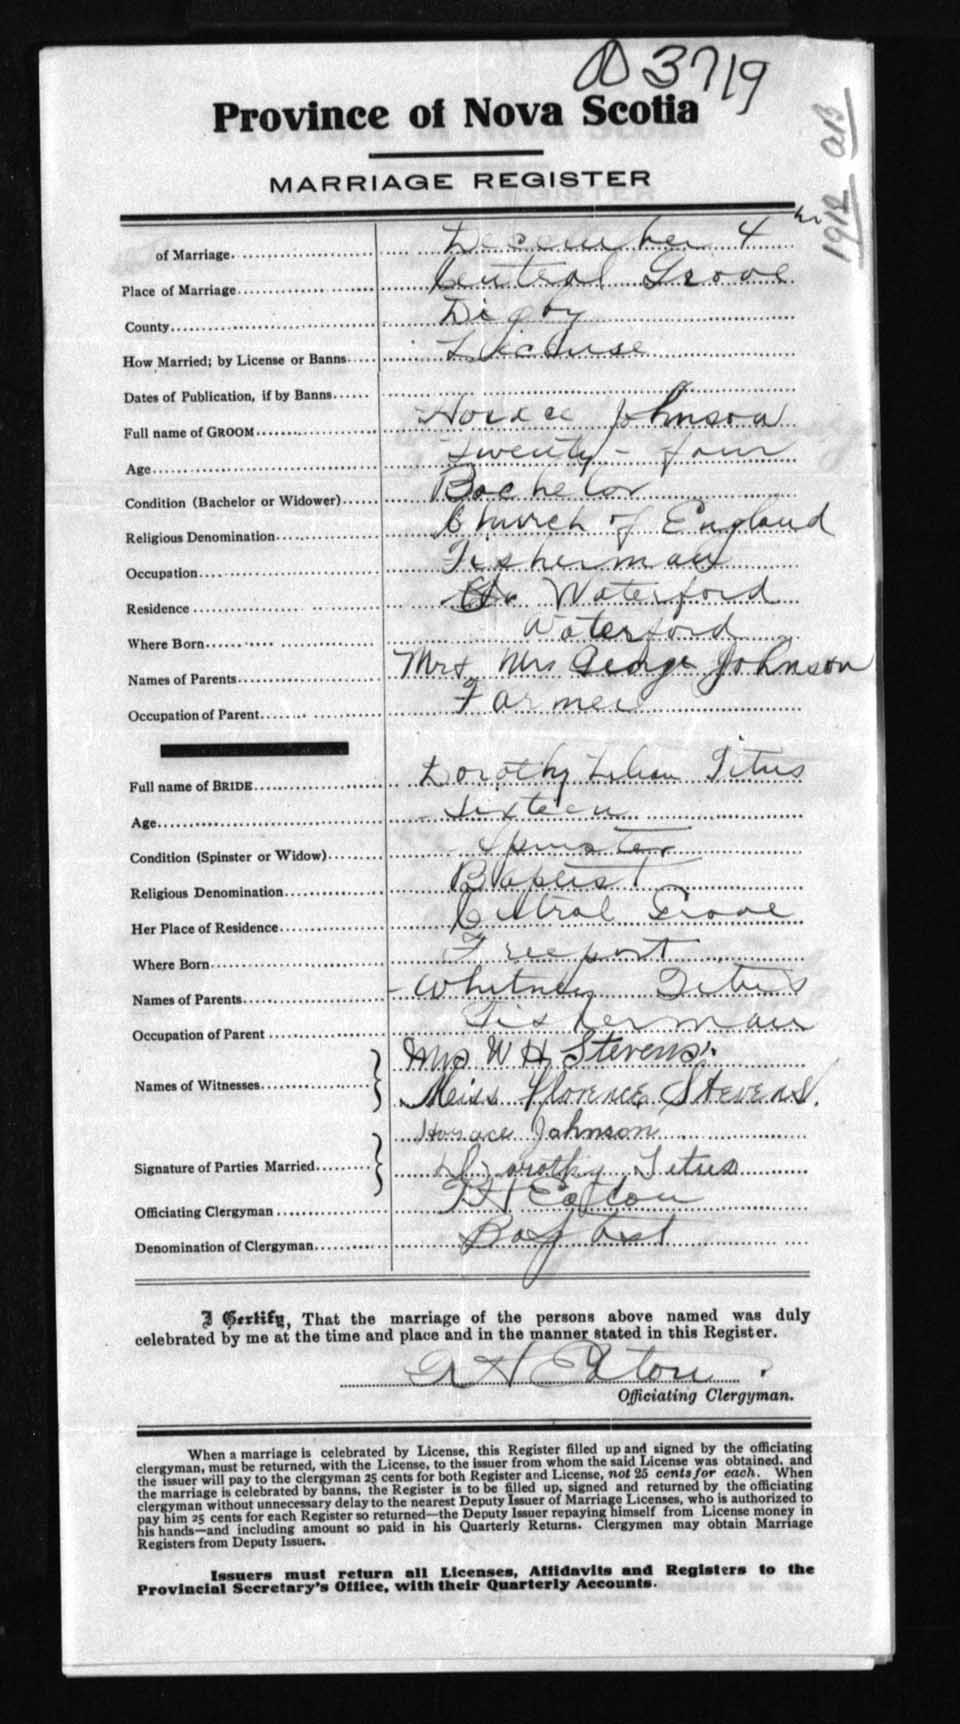 3719
Province of Nova Scotia
1912 AB
MARRIAGE REGISTER
of Marriage December 4th
Place of Marriage Central Grove
County Digby
How Married; by License or Banns License
Dates of Publication, if by Banns
Full name of GROOM Horace Johnson
Age Twenty-four
Condition (Bachelor or Widower) Bachelor
Religious Denomination Church of England
Occupation Fisherman
Residence Waterford
Where Born Waterford
Names of Parents Mr & Mrs George Johnson
Occupation of Parent Farmer
Full name of BRIDE Dorothy Lilian Titus
Age Sixteen
Condition (Spinster or Widow) Spinster
Religious Denomination Baptist
Her Place of Residence Central Grove
Where Born Freeport
Names of Parents Whitney Titus
Occupation of Parent Fisherman
Names of Witnesses Mrs W H Stevens.
Miss Florence Stevens.
Signature of Parties Married Horace Johnson
Dorothy Titus
Officiating Clergyman H Eaton
Denomination of Clergyman Baptist
I Certify, That the marriage of the persons above named was duly
celebrated by me at the time and place and in the manner stated in this Register.
H Eaton.
Officiating Clergyman.
When a marriage is celebrated by License, this Register filled up and signed by the officiating
clergyman, must be returned, with the License, to the issuer from whom the said License was obtained, and
the issuer will pay to the clergyman 25 cents for both Register and License, not 25 cents for each. When
the marriage is celebrated by banns, the Register is to be filled up, signed and returned by the officiating
clergyman without unnecessary delay to the nearest Deputy Issuer of Marriage Licenses, who is authorized to
pay him 25 cents for each Register so returned—the Deputy Issuer repaying himself from License money in
his hands—and including amount so paid in his Quarterly Returns. Clergymen may obtain Marriage
Registers from Deputy Issuers.
Issuers must return all Licenses, Affidavits and Registers to the
Provincial Secretary's Office, with their Quarterly Accounts.